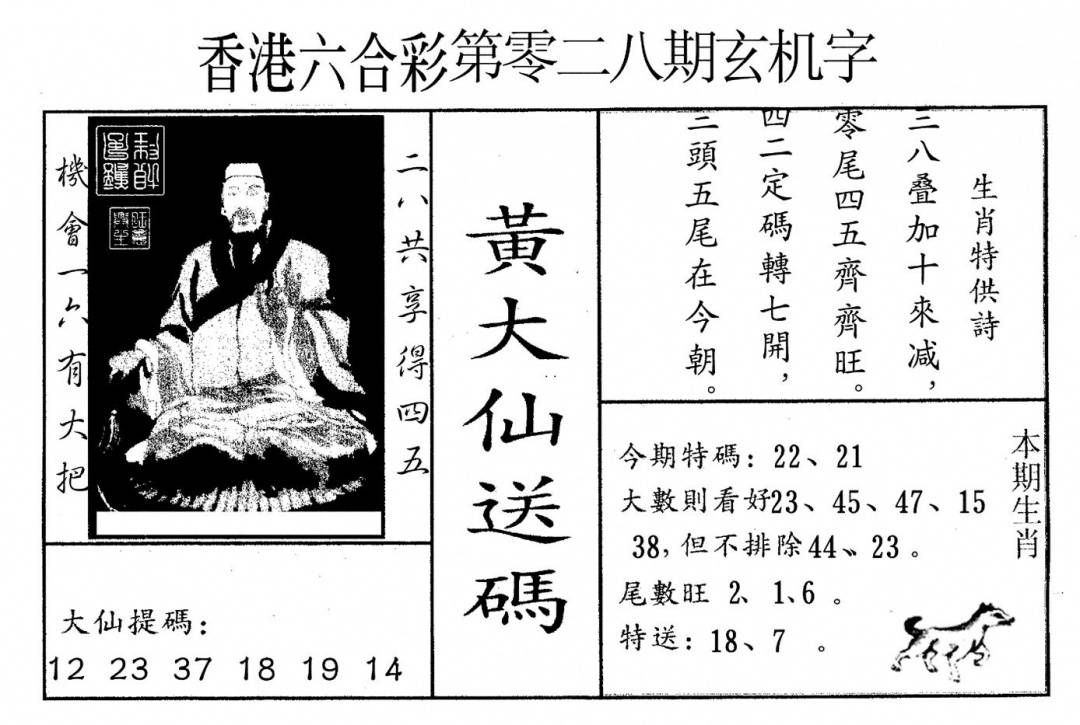 香港六合彩第零二八期玄机字
二八共享得四五
機會一六有大把
大仙提碼：
12 23 37 18 19 14
黃大仙送碼
生肖特供詩
三八叠加十來減，
零尾四五齊齊旺。
四二定碼轉七開，
三頭五尾在今朝。
本期生肖
今期特碼：22、21
大數則看好23、45、47、15
38，但不排除44、23。
尾數旺 2、1、6。
特送：18、7 。